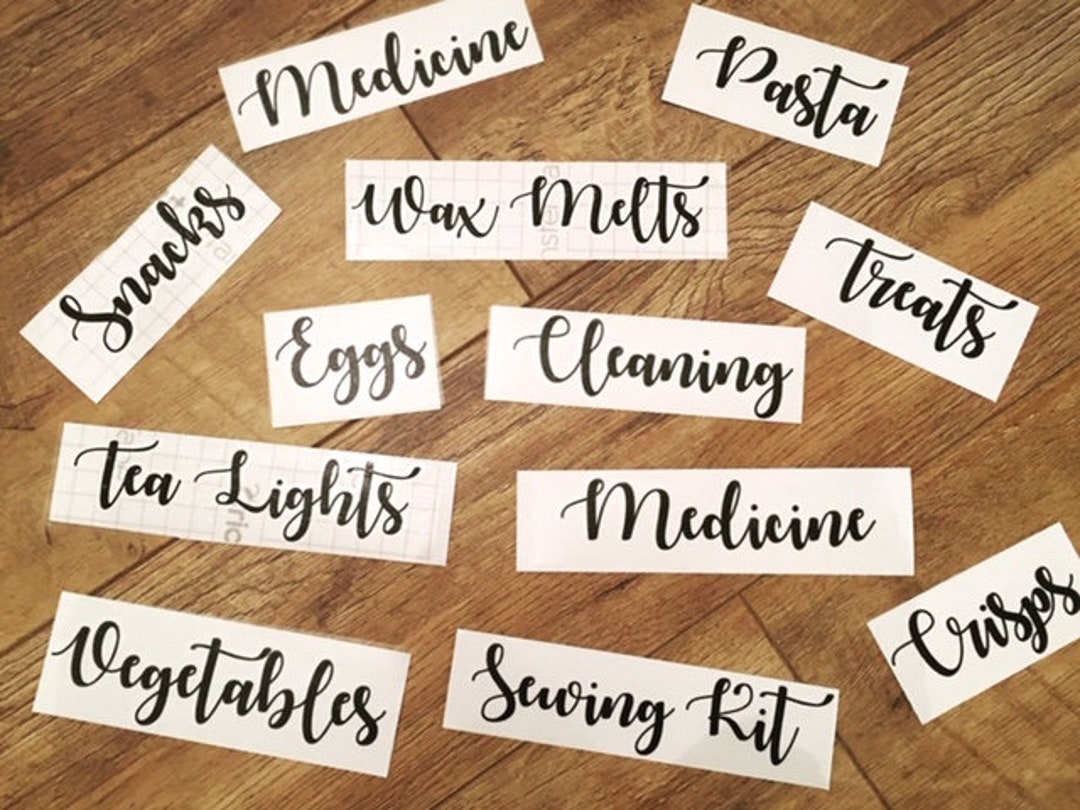 Medicine
Pasta
Snacks
Wax Melts
Treats
Eggs
Cleaning
Tea Lights
Medicine
Crisps
Vegetables
Sewing Kit